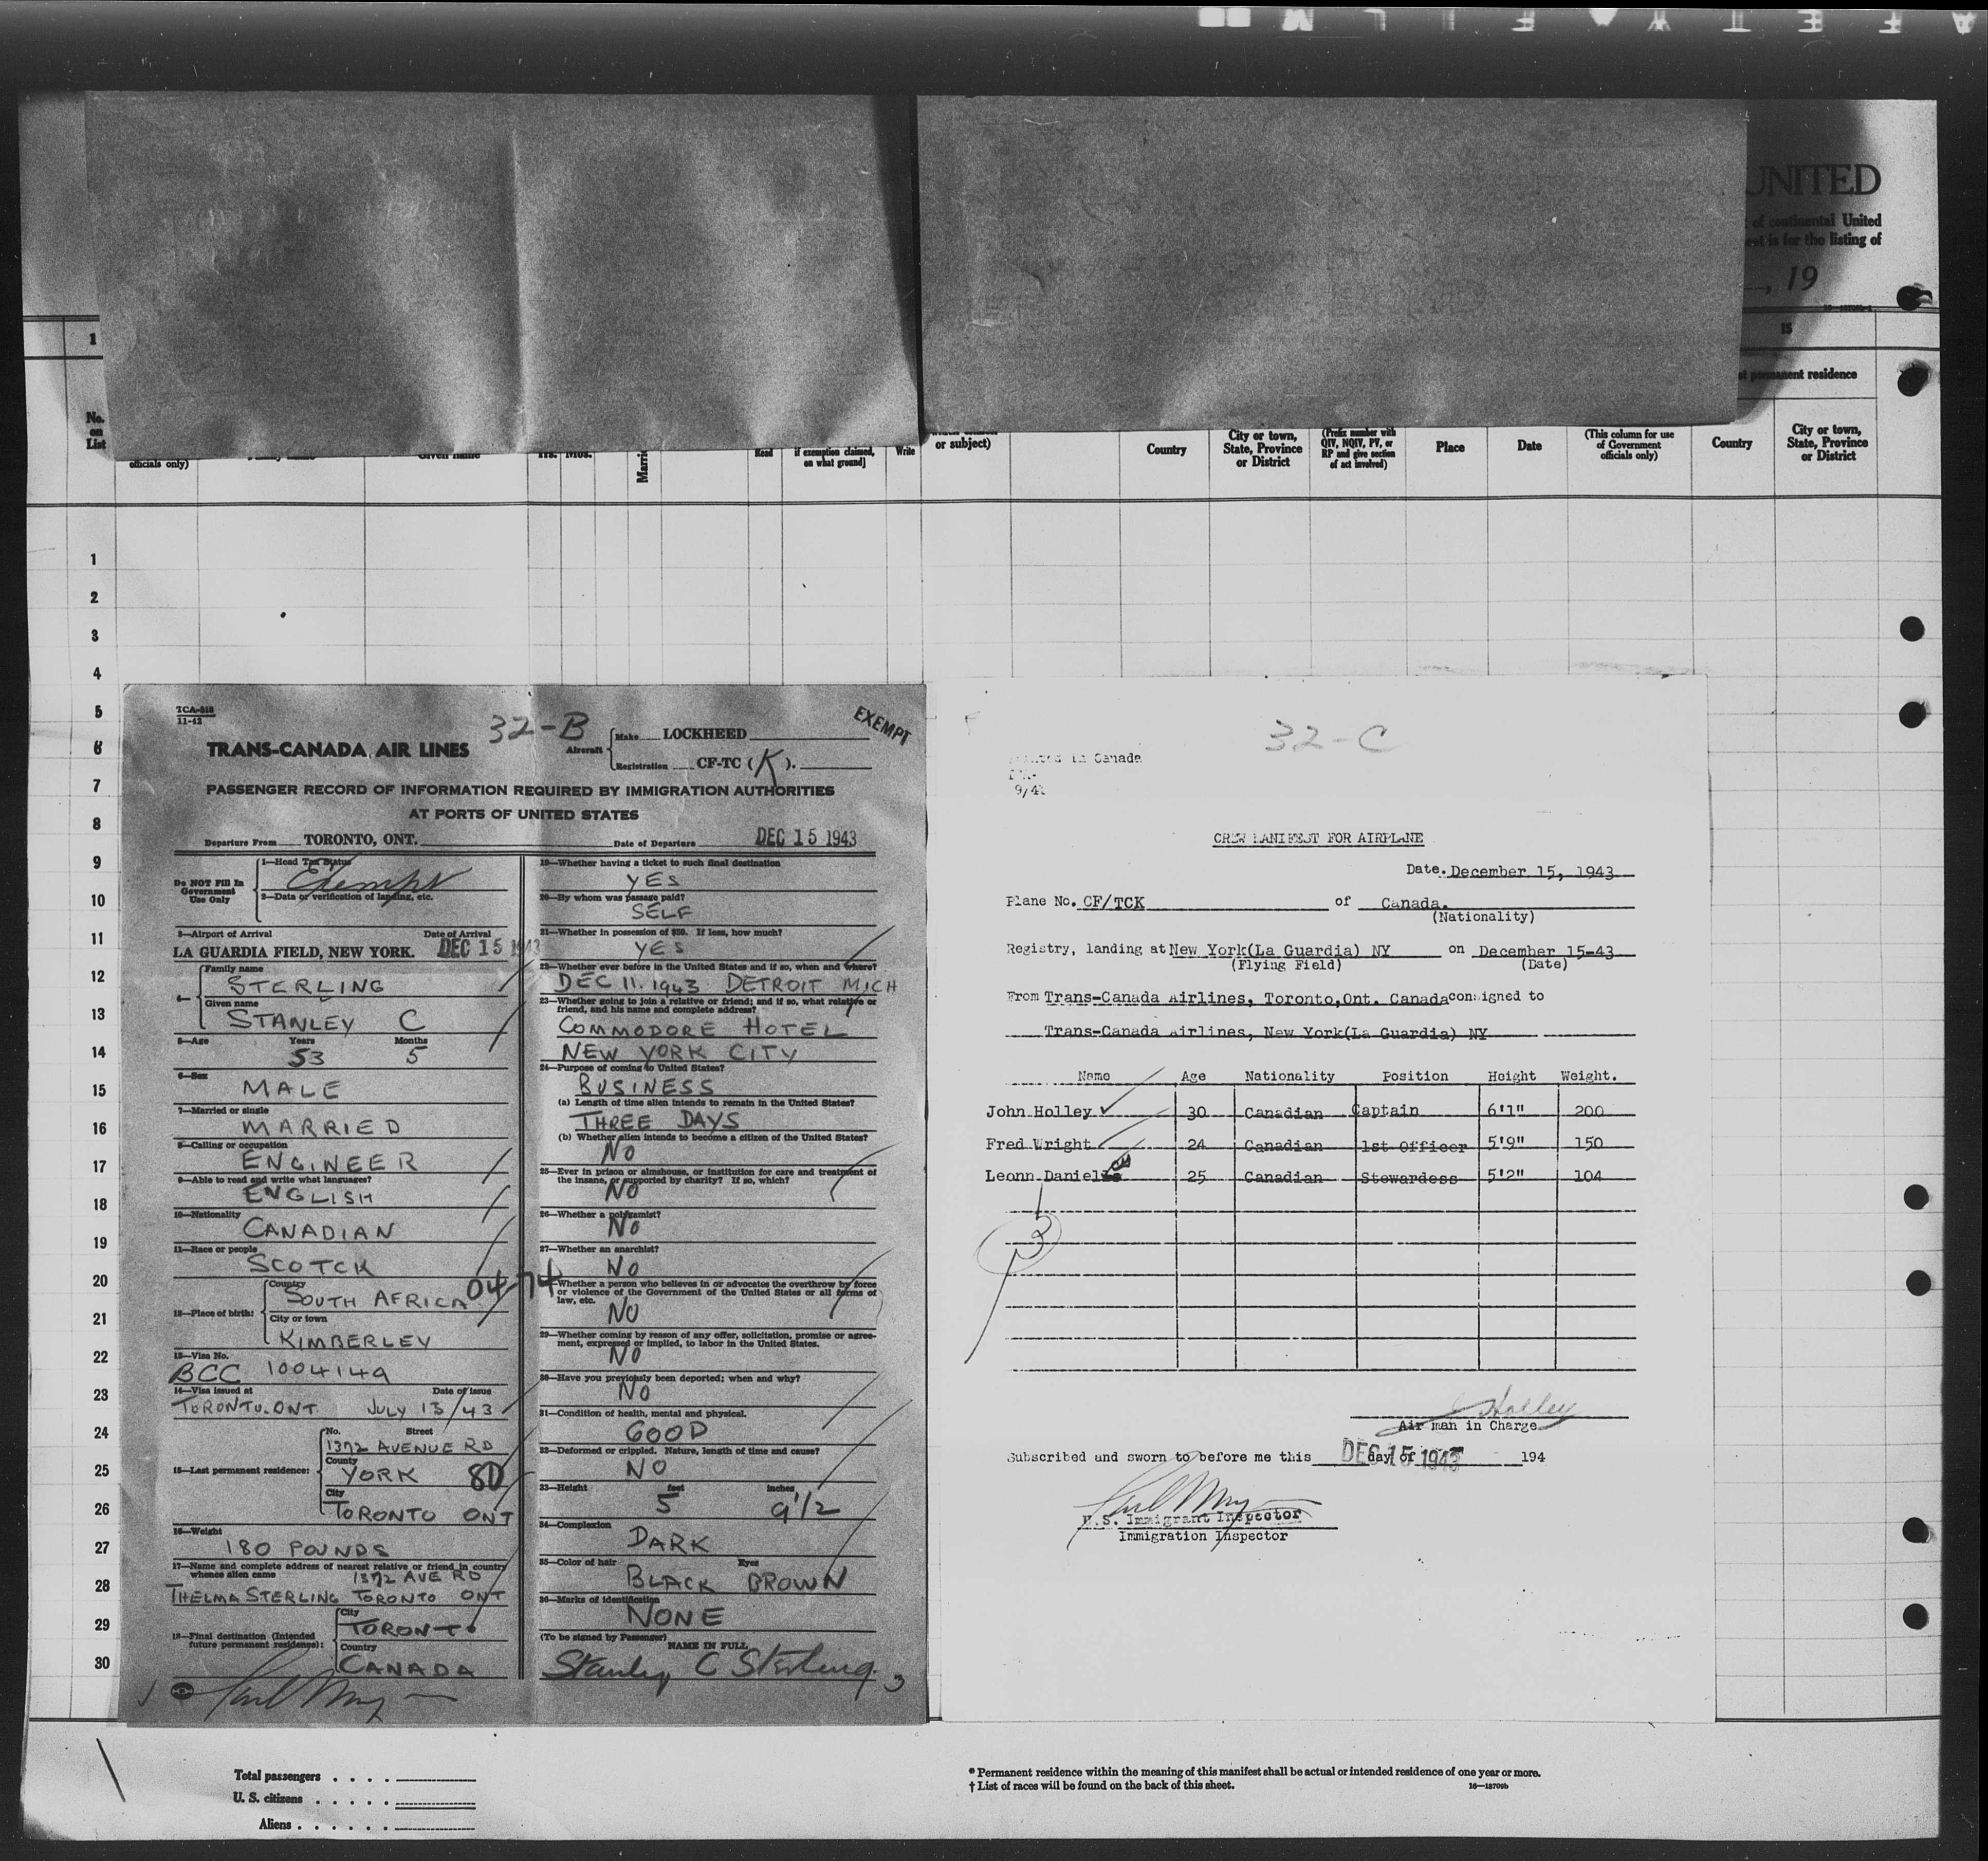 SAFETY FILM
UNITED
of continental United
est is for the listing of
, 19
1
15
permanent residence
No.
on
List
officials only)
Given name
Yrs. Mos.
Read
if exemption claimed,
on what ground]
Write
or subject)
Country
City or town,
State, Province
or District
(Prefix number with
QIV, NQIV, PV, or
RP and give section
of act involved)
Place
Date
(This column for use
of Government
officials only)
Country
City or town,
State, Province
or District
1
2
3
4
5
6
7
8
9
10
11
12
13
14
15
16
17
18
19
20
21
22
23
24
25
26
27
28
29
30
TCA-818
11-42
32-B
EXEMPT
TRANS-CANADA AIR LINES
Aircraft
Make LOCKHEED
Registration CF-TC (K).
PASSENGER RECORD OF INFORMATION REQUIRED BY IMMIGRATION AUTHORITIES
AT PORTS OF UNITED STATES
Departure From TORONTO, ONT. Date of Departure DEC 15 1943
Do NOT Fill In
Government
Use Only
1—Head Tax Status
Exempt
2—Data or verification of landing, etc.
3—Airport of Arrival Date of Arrival
LA GUARDIA FIELD, NEW YORK. DEC 15 1943
4—
Family name
STERLING
Given name
STANLEY C
5—Age Years Months
53 5
6—Sex
MALE
7—Married or single
MARRIED
8—Calling or occupation
ENGINEER
9—Able to read and write what languages?
ENGLISH
10—Nationality
CANADIAN
11—Race or people
SCOTCH
04-74
12—Place of birth:
Country
SOUTH AFRICA
City or town
KIMBERLEY
13—Visa No.
BCC 1004149
14—Visa issued at Date of issue
TORONTO. ONT. JULY 13/43
15—Last permanent residence:
No. Street
1372 AVENUE RD
County
YORK 80
City
TORONTO ONT
16—Weight
180 POUNDS
17—Name and complete address of nearest relative or friend in country
whence alien came 1372 AVE RD
THELMA STERLING TORONTO ONT
18—Final destination (Intended
future permanent residence):
City
TORONTO
Country
CANADA
19—Whether having a ticket to such final destination
YES
20—By whom was passage paid?
SELF
21—Whether in possession of $50. If less, how much?
YES
22—Whether ever before in the United States and if so, when and where?
DEC 11. 1943 DETROIT MICH
23—Whether going to join a relative or friend; and if so, what relative or
friend, and his name and complete address?
COMMODORE HOTEL
NEW YORK CITY
24—Purpose of coming to United States?
BUSINESS
(a) Length of time alien intends to remain in the United States?
THREE DAYS
(b) Whether alien intends to become a citizen of the United States?
NO
25—Ever in prison or almshouse, or institution for care and treatment of
the insane, or supported by charity? If so, which?
NO
26—Whether a polygamist?
NO
27—Whether an anarchist?
NO
Whether a person who believes in or advocates the overthrow by force
or violence of the Government of the United States or all forms of
law, etc.
NO
29—Whether coming by reason of any offer, solicitation, promise or agree-
ment, expressed or implied, to labor in the United States.
NO
30—Have you previously been deported; when and why?
NO
31—Condition of health, mental and physical.
GOOD
32—Deformed or crippled. Nature, length of time and cause?
NO
33—Height feet inches
5 9 1/2
34—Complexion
DARK
35—Color of hair Eyes
BLACK BROWN
36—Marks of identification
NONE
(To be signed by Passenger) NAME IN FULL
Stanley C Sterling 3
32-C
Printed in Canada
CREW MANIFEST FOR AIRPLANE
Date. December 15, 1943
Plane No. CF/TCK of Canada.
(Nationality)
Registry, landing at New York(La Guardia) NY on December 15-43
(Flying Field) (Date)
From Trans-Canada Airlines, Toronto,Ont. Canada consigned to
Trans-Canada Airlines, New York(La Guardia) NY
Name Age Nationality Position Height Weight.
John Holley 30 Canadian Captain 6'1" 200
Fred Wright 24 Canadian 1st Officer 5'9" 150
Leonn Daniells 25 Canadian Stewardess 5'2" 104
3
J Holley
Air man in Charge
Subscribed and sworn to before me this DEC 15 1943 day of 194
U.S. Immigrant Inspector
Immigration Inspector
Total passengers . . . .
U. S. citizens . . . . .
Aliens . . . . . . .
* Permanent residence within the meaning of this manifest shall be actual or intended residence of one year or more.
† List of races will be found on the back of this sheet. 16—18700b